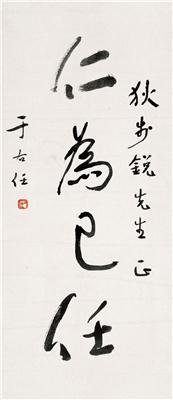 狄步銳先生正
仁為己任
于右任